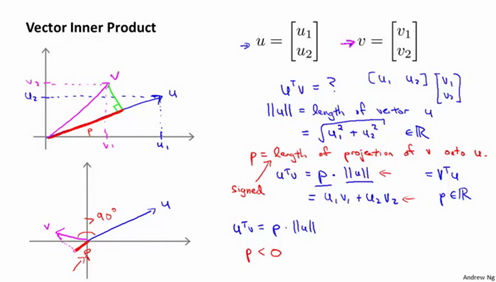 Vector Inner Product
→ u = [u₁ u₂]
→ v = [v₁ v₂]
v₂
u₂
v
u
p
v₁
u₁
uᵀv = ? [u₁ u₂] [v₁ v₂]
||u|| = length of vector u
= √(u₁² + u₂²) ∈ ℝ
p = length of projection of v onto u.
signed
uᵀv = p · ||u|| ← = vᵀu
= u₁v₁ + u₂v₂ ← p ∈ ℝ
u
v
90°
p
uᵀv = p · ||u||
p < 0
Andrew Ng